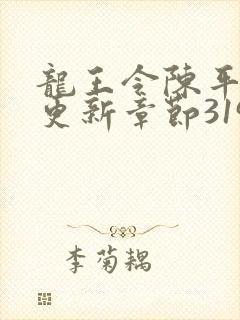 龍王令陳平
更新章節319
李菊耦